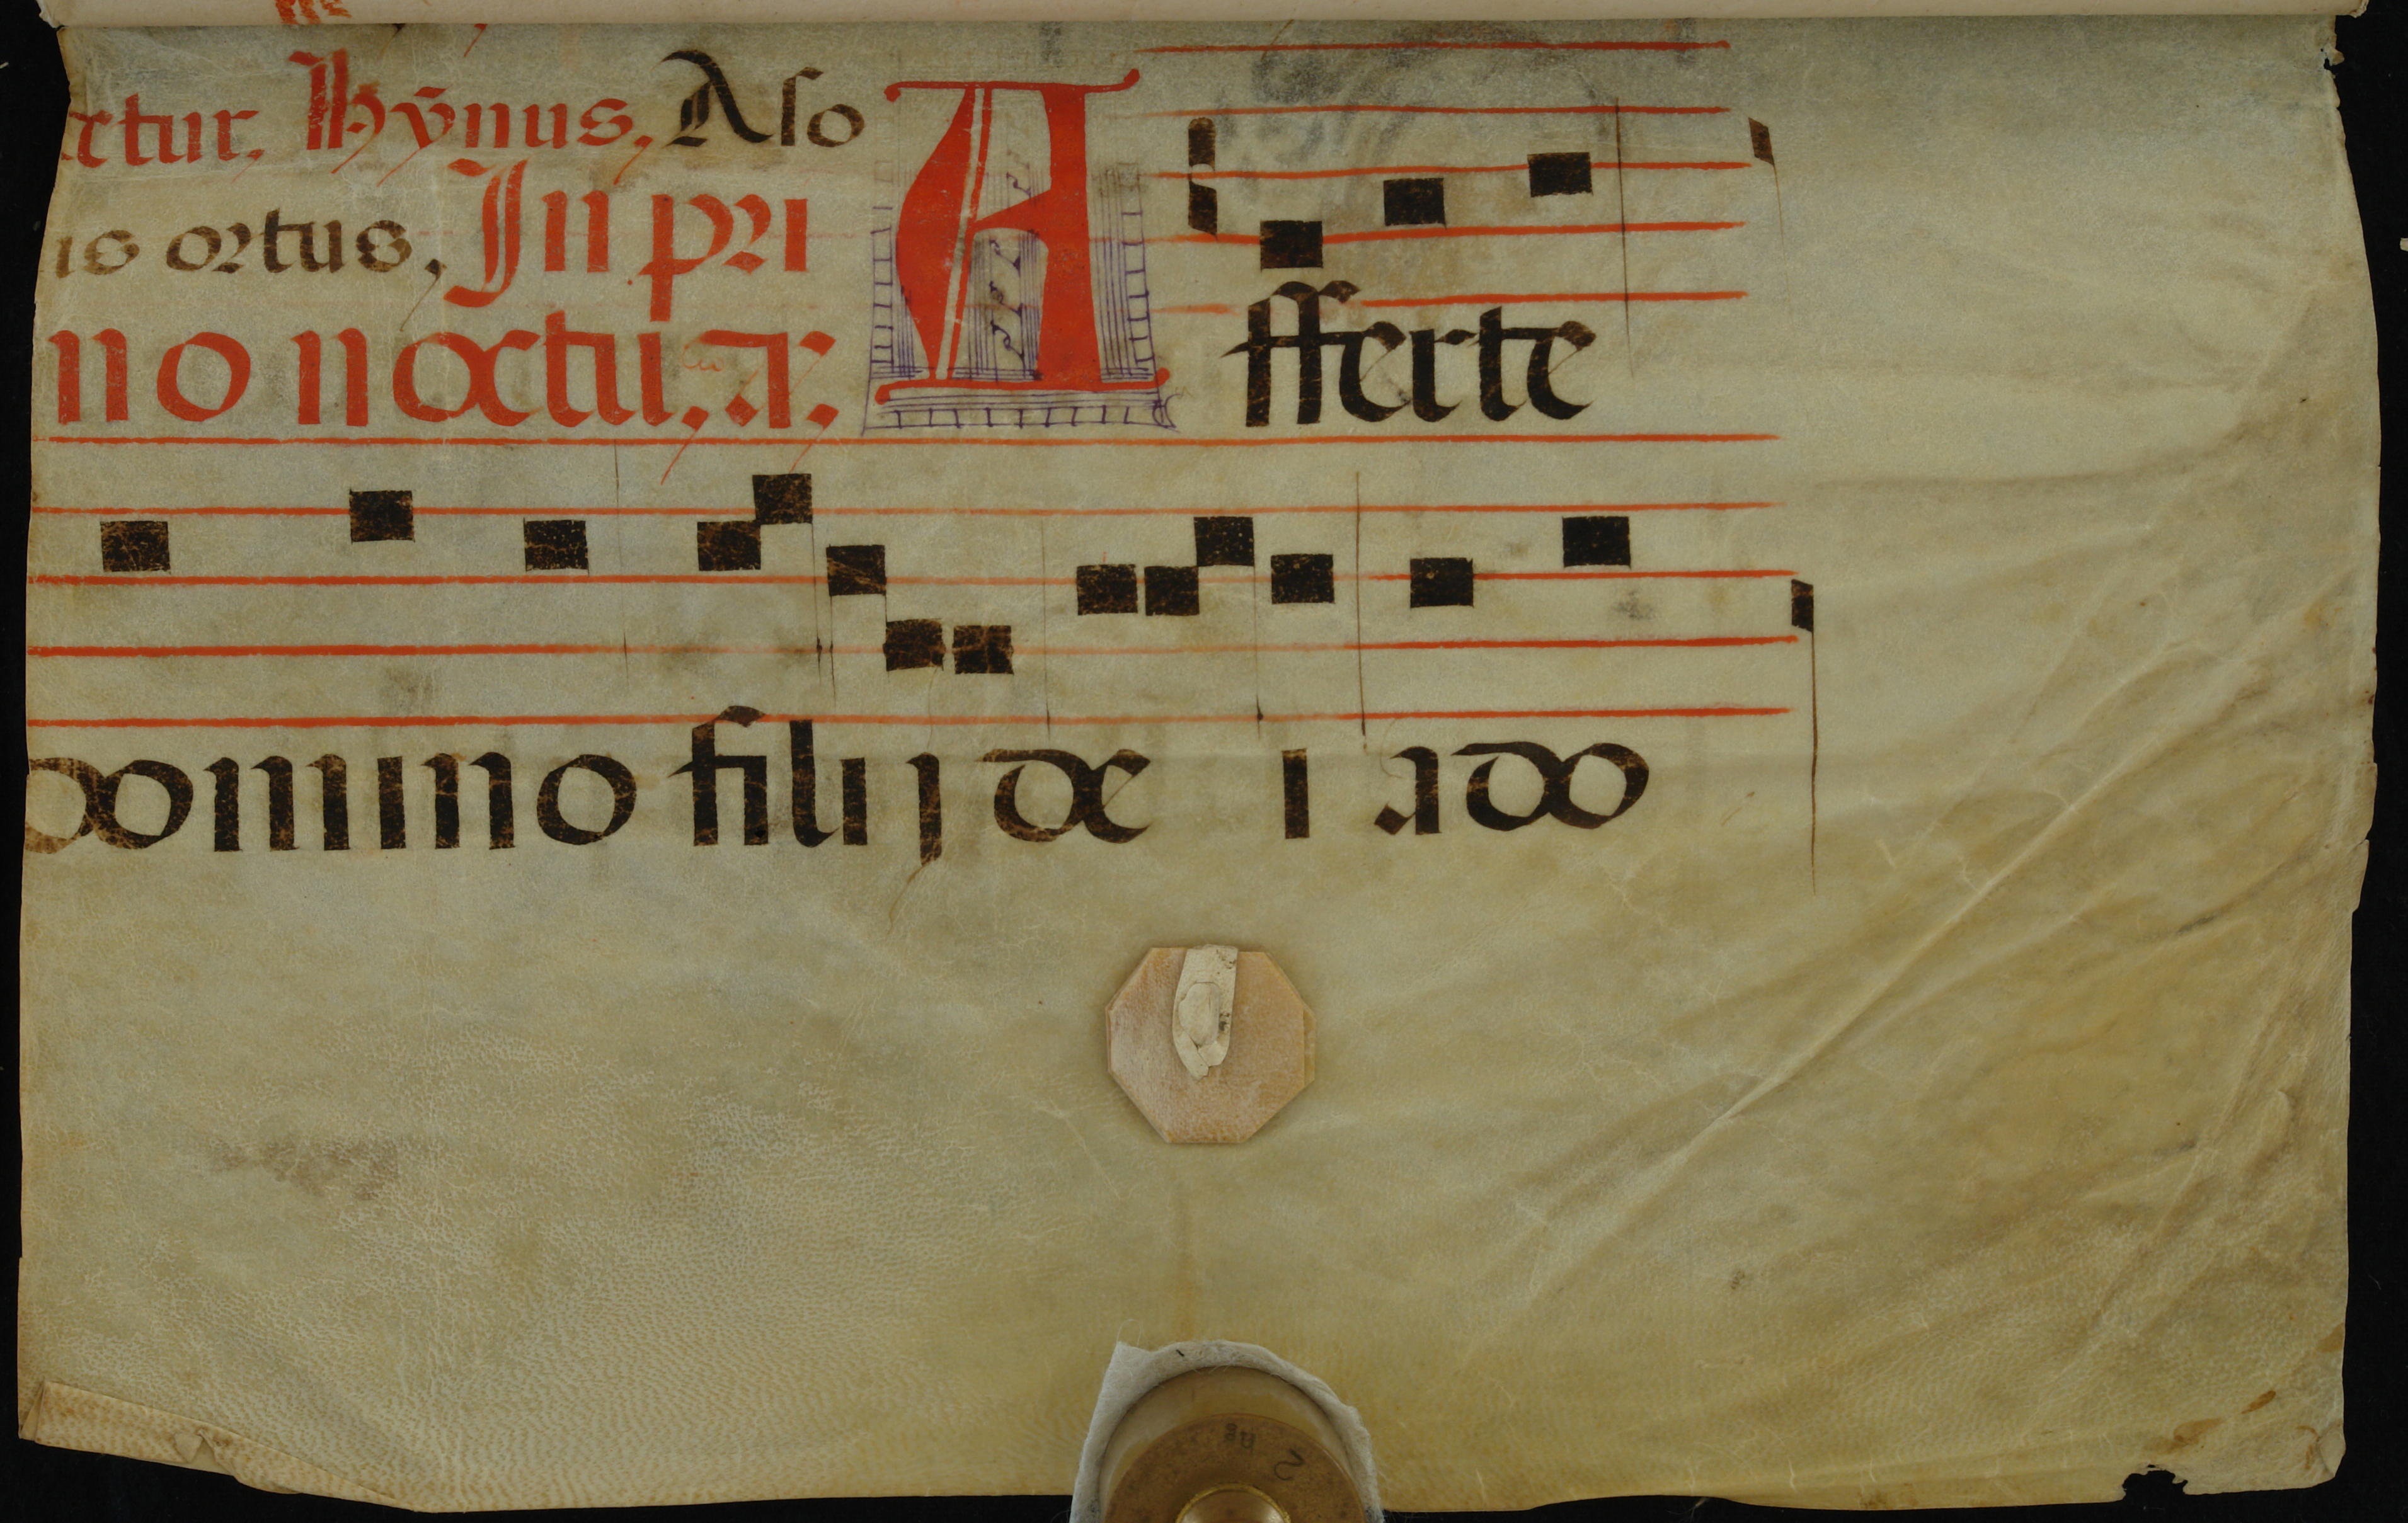 ctur, Hȳnus, A so
is ortus, In pri
no noctu, an̄. Afferte
domino filij de i ado